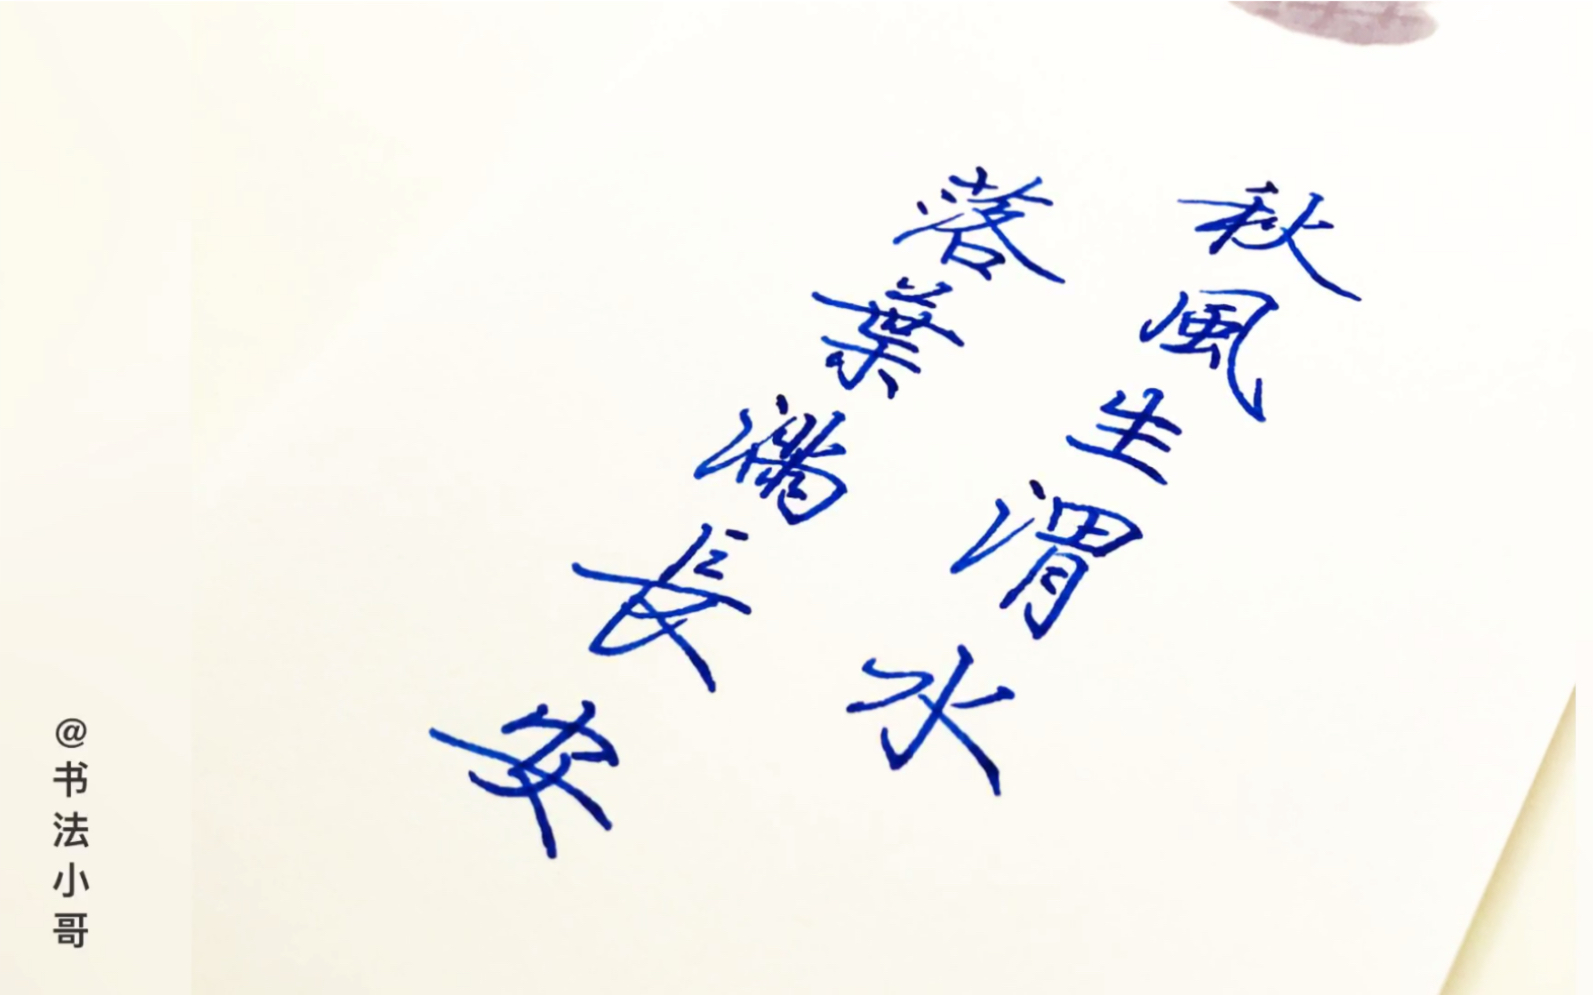 秋風生渭水
落葉滿長安
@书法小哥